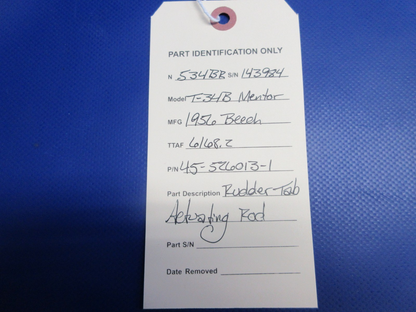 PART IDENTIFICATION ONLY
N 534BR S/N 143984
Model T-34B Mentor
MFG 1956 Beech
TTAF 6168.2
P/N 45-526013-1
Part Description Rudder Tab
Actuating Rod
Part S/N
Date Removed